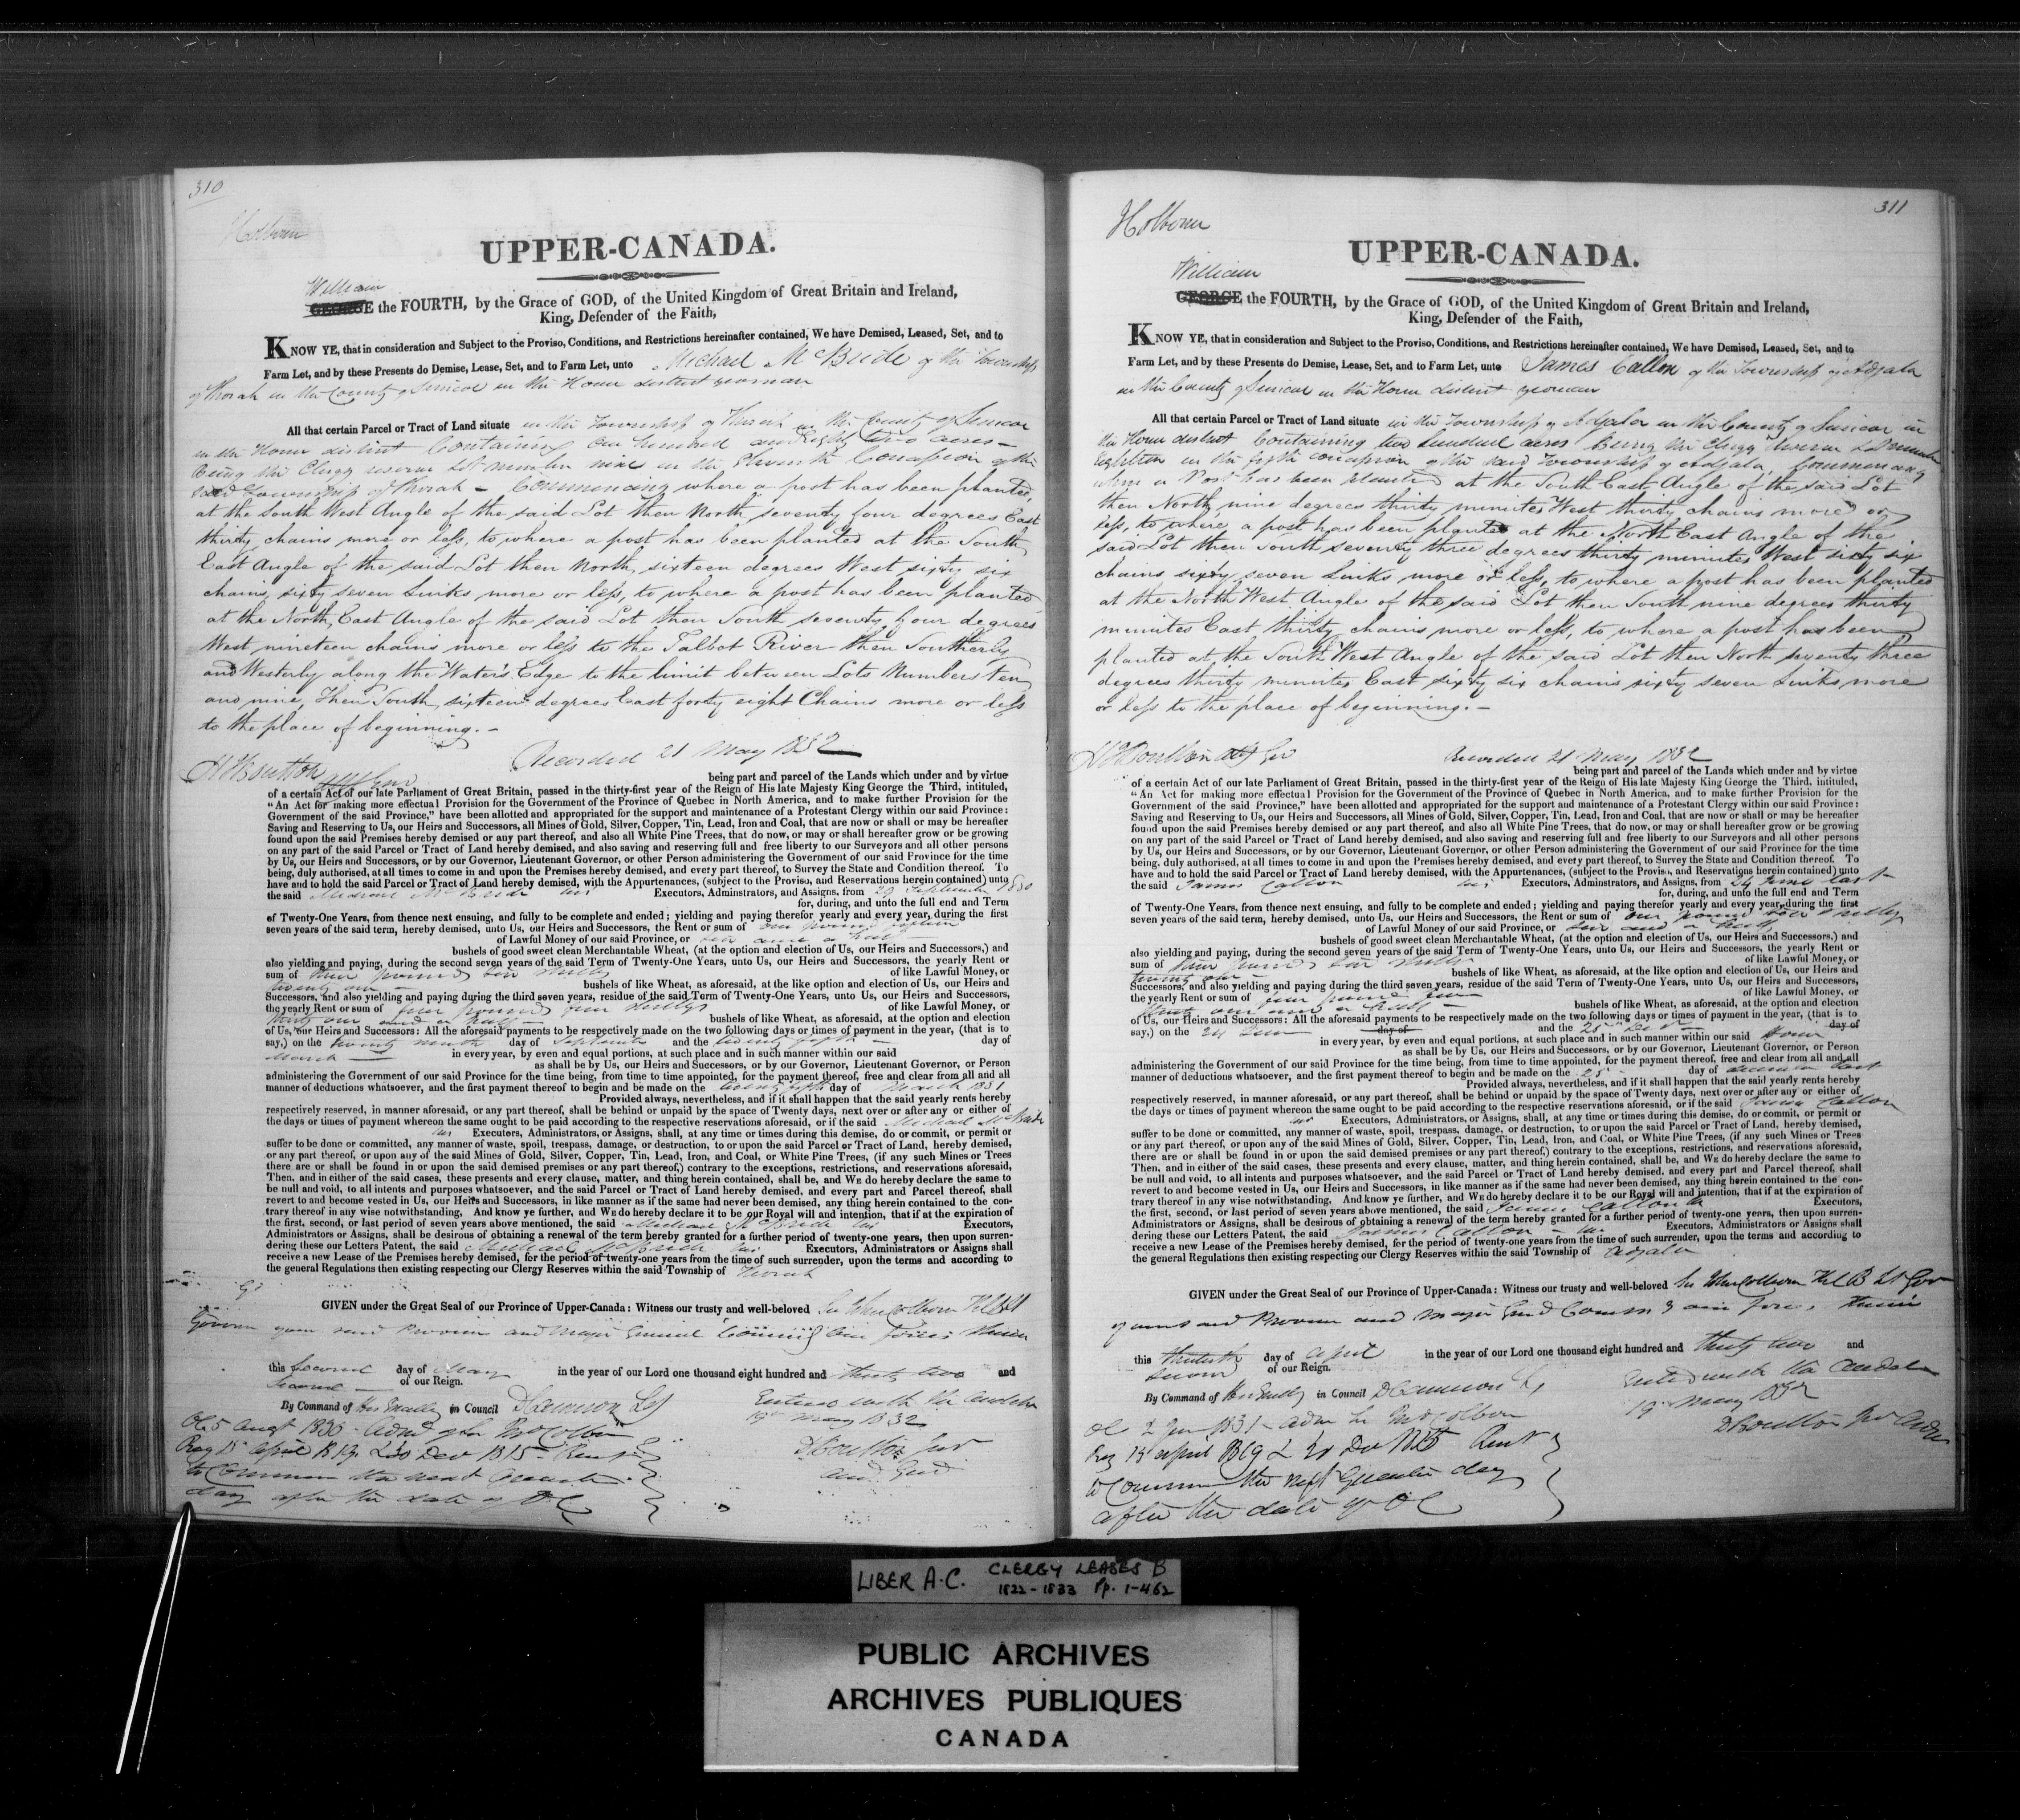 310
Holborn
UPPER-CANADA.
William
GEORGE the FOURTH, by the Grace of GOD, of the United Kingdom of Great Britain and Ireland,
King, Defender of the Faith,
KNOW YE, that in consideration and Subject to the Proviso, Conditions, and Restrictions hereinafter contained, We have Demised, Leased, Set, and to
Farm Let, and by these Presents do Demise, Lease, Set, and to Farm Let, unto Michael McBride of the Township
of Thorah in the County of Simcoe in the Home district yeoman
All that certain Parcel or Tract of Land situate in the Township of Thorah in the County of Simcoe
in the Home district Containing One hundred and Eighty two acres –
Being the Clergy reserve Lot number nine in the Eleventh Concession of the
said Township of Thorah – Commencing where a post has been planted,
at the South West Angle of the said Lot then North seventy four degrees East
thirty chains more or less, to where a post has been planted at the South
East Angle of the said Lot then North, sixteen degrees West sixty six
chains, sixty seven Links more or less, to where a post has been planted
at the North East Angle of the said Lot then South seventy four degrees
West nineteen chains more or less to the Talbot River then Southerly
and Westerly along the Water's Edge to the limit between Lots Numbers ten
and nine, Then South, sixteen degrees East forty eight Chains more or less
to the place of beginning. –
Recorded 21 May 1832
H J Boulton Att Gen
being part and parcel of the Lands which under and by virtue
of a certain Act of our late Parliament of Great Britain, passed in the thirty-first year of the Reign of His late Majesty King George the Third, intituled,
"An Act for making more effectual Provision for the Government of the Province of Quebec in North America, and to make further Provision for the
Government of the said Province," have been allotted and appropriated for the support and maintenance of a Protestant Clergy within our said Province:
Saving and Reserving to Us, our Heirs and Successors, all Mines of Gold, Silver, Copper, Tin, Lead, Iron and Coal, that are now or shall or may be hereafter
found upon the said Premises hereby demised or any part thereof, and also all White Pine Trees, that do now, or may or shall hereafter grow or be growing
on any part of the said Parcel or Tract of Land hereby demised, and also saving and reserving full and free liberty to our Surveyors and all other persons
by Us, our Heirs and Successors, or by our Governor, Lieutenant Governor, or other Person administering the Government of our said Province for the time
being, duly authorised, at all times to come in and upon the Premises hereby demised, and every part thereof, to Survey the State and Condition thereof. To
have and to hold the said Parcel or Tract of Land hereby demised, with the Appurtenances, (subject to the Proviso, and Reservations herein contained) unto
the said Michael McBride his Executors, Adminstrators, and Assigns, from 29 September 1830
for, during, and unto the full end and Term
of Twenty-One Years, from thence next ensuing, and fully to be complete and ended; yielding and paying therefor yearly and every year, during the first
seven years of the said term, hereby demised, unto Us, our Heirs and Successors, the Rent or sum of one pound fifteen
of Lawful Money of our said Province, or ten and a half
bushels of good sweet clean Merchantable Wheat, (at the option and election of Us, our Heirs and Successors,) and
also yielding and paying, during the second seven years of the said Term of Twenty-One Years, unto Us, our Heirs and Successors, the yearly Rent or
sum of three pounds ten shillgs of like Lawful Money, or
twenty one – bushels of like Wheat, as aforesaid, at the like option and election of Us, our Heirs and
Successors, and also yielding and paying during the third seven years, residue of the said Term of Twenty-One Years, unto Us, our Heirs and Successors,
the yearly Rent or sum of five pounds five shillgs of like Lawful Money, or
thirty one and a half – bushels of like Wheat, as aforesaid, at the option and election
of Us, our Heirs and Successors: All the aforesaid payments to be respectively made on the two following days or times of payment in the year, (that is to
say,) on the twenty ninth day of September and the twenty fifth – day of
March – in every year, by even and equal portions, at such place and in such manner within our said
as shall be by Us, our Heirs and Successors, or by our Governor, Lieutenant Governor, or Person
administering the Government of our said Province for the time being, from time to time appointed, for the payment thereof, free and clear from all and all
manner of deductions whatsoever, and the first payment thereof to begin and be made on the twenty fifth day of March 1831
Provided always, nevertheless, and if it shall happen that the said yearly rents hereby
respectively reserved, in manner aforesaid, or any part thereof, shall be behind or unpaid by the space of Twenty days, next over or after any or either of
the days or times of payment whereon the same ought to be paid according to the respective reservations aforesaid, or if the said Michael McBride
his Executors, Administrators, or Assigns, shall, at any time or times during this demise, do or commit, or permit or
suffer to be done or committed, any manner of waste, spoil, trespass, damage, or destruction, to or upon the said Parcel or Tract of Land, hereby demised,
or any part thereof, or upon any of the said Mines of Gold, Silver, Copper, Tin, Lead, Iron, and Coal, or White Pine Trees, (if any such Mines or Trees
there are or shall be found in or upon the said demised premises or any part thereof,) contrary to the exceptions, restrictions, and reservations aforesaid,
Then, and in either of the said cases, these presents and every clause, matter, and thing herein contained, shall be, and WE do hereby declare the same to
be null and void, to all intents and purposes whatsoever, and the said Parcel or Tract of Land hereby demised, and every part and Parcel thereof, shall
revert to and become vested in Us, our Heirs and Successors, in like manner as if the same had never been demised, any thing herein contained to the con-
trary thereof in any wise notwithstanding. And know ye further, and WE do hereby declare it to be our Royal will and intention, that if at the expiration of
the first, second, or last period of seven years above mentioned, the said Michael McBride his Executors,
Administrators or Assigns, shall be desirous of obtaining a renewal of the term hereby granted for a further period of twenty-one years, then upon surren-
dering these our Letters Patent, the said Michael McBride his Executors, Administrators or Assigns shall
receive a new Lease of the Premises hereby demised, for the period of twenty-one years from the time of such surrender, upon the terms and according to
the general Regulations then existing respecting our Clergy Reserves within the said Township of Thorah
GIVEN under the Great Seal of our Province of Upper-Canada: Witness our trusty and well-beloved Sir John Colborne KCB Lt
Govern of our said Province and Major General Commg our forces therein
this Second day of May in the year of our Lord one thousand eight hundred and thirty two and
Second – of our Reign.
By Command of His Excelly in Council D Cameron Sey
Entered with the Auditor
19th May 1832
J Boulton Junr
Aud Genl
OC 5 Augt 1830 –
Reg 15 April 1819 & 20 Decr 1815 – Rent
to Commence the next Quarter
day after the date of OC
311
Holborn
UPPER-CANADA.
William
GEORGE the FOURTH, by the Grace of GOD, of the United Kingdom of Great Britain and Ireland,
King, Defender of the Faith,
KNOW YE, that in consideration and Subject to the Proviso, Conditions, and Restrictions hereinafter contained, We have Demised, Leased, Set, and to
Farm Let, and by these Presents do Demise, Lease, Set, and to Farm Let, unto James Callon of the Township of Adjala
in the County of Simcoe in the Home district yeoman
All that certain Parcel or Tract of Land situate in the Township of Adjala in the County of Simcoe in
the Home district Containing two hundred acres Being the Clergy reserve Lot number
Eighteen in the fifth concession of the said Township of Adjala, Commencing
where a Post has been planted at the South East Angle of the said Lot
then North, nine degrees thirty minutes West thirty chains more or
less, to where a post has been planted at the North East Angle of the
said Lot then South seventy three degrees thirty minutes West sixty six
chains sixty seven Links more or less, to where a post has been planted
at the North West Angle of the said Lot then South nine degrees thirty
minutes East thirty chains more or less, to where a post has been
planted at the South West Angle of the said Lot then North seventy three
degrees thirty minutes East sixty six chains sixty seven Links more
or less to the place of beginning. –
H J Boulton Att Gen
Recorded 21 May 1832
being part and parcel of the Lands which under and by virtue
of a certain Act of our late Parliament of Great Britain, passed in the thirty-first year of the Reign of His late Majesty King George the Third, intituled,
"An Act for making more effectual Provision for the Government of the Province of Quebec in North America, and to make further Provision for the
Government of the said Province," have been allotted and appropriated for the support and maintenance of a Protestant Clergy within our said Province:
Saving and Reserving to Us, our Heirs and Successors, all Mines of Gold, Silver, Copper, Tin, Lead, Iron and Coal, that are now or shall or may be hereafter
found upon the said Premises hereby demised or any part thereof, and also all White Pine Trees, that do now, or may or shall hereafter grow or be growing
on any part of the said Parcel or Tract of Land hereby demised, and also saving and reserving full and free liberty to our Surveyors and all other persons
by Us, our Heirs and Successors, or by our Governor, Lieutenant Governor, or other Person administering the Government of our said Province for the time
being, duly authorised, at all times to come in and upon the Premises hereby demised, and every part thereof, to Survey the State and Condition thereof. To
have and to hold the said Parcel or Tract of Land hereby demised, with the Appurtenances, (subject to the Proviso, and Reservations herein contained) unto
the said James Callon his Executors, Adminstrators, and Assigns, from 24 June last
for, during, and unto the full end and Term
of Twenty-One Years, from thence next ensuing, and fully to be complete and ended; yielding and paying therefor yearly and every year, during the first
seven years of the said term, hereby demised, unto Us, our Heirs and Successors, the Rent or sum of one pound shillgs
of Lawful Money of our said Province, or ten and a half
bushels of good sweet clean Merchantable Wheat, (at the option and election of Us, our Heirs and Successors,) and
also yielding and paying, during the second seven years of the said Term of Twenty-One Years, unto Us, our Heirs and Successors, the yearly Rent or
sum of three pounds ten shills of like Lawful Money, or
twenty one – bushels of like Wheat, as aforesaid, at the like option and election of Us, our Heirs and
Successors, and also yielding and paying during the third seven years, residue of the said Term of Twenty-One Years, unto Us, our Heirs and Successors,
the yearly Rent or sum of five pound five of like Lawful Money, or
thirty one and a half – bushels of like Wheat, as aforesaid, at the option and election
of Us, our Heirs and Successors: All the aforesaid payments to be respectively made on the two following days or times of payment in the year, (that is to
say,) on the 24 June day of and the 25th Decr day of
in every year, by even and equal portions, at such place and in such manner within our said Home
as shall be by Us, our Heirs and Successors, or by our Governor, Lieutenant Governor, or Person
administering the Government of our said Province for the time being, from time to time appointed, for the payment thereof, free and clear from all and all
manner of deductions whatsoever, and the first payment thereof to begin and be made on the 25 – day of December last
Provided always, nevertheless, and if it shall happen that the said yearly rents hereby
respectively reserved, in manner aforesaid, or any part thereof, shall be behind or unpaid by the space of Twenty days, next over or after any or either of
the days or times of payment whereon the same ought to be paid according to the respective reservations aforesaid, or if the said James Callon
his Executors, Administrators, or Assigns, shall, at any time or times during this demise, do or commit, or permit or
suffer to be done or committed, any manner of waste, spoil, trespass, damage, or destruction, to or upon the said Parcel or Tract of Land, hereby demised,
or any part thereof, or upon any of the said Mines of Gold, Silver, Copper, Tin, Lead, Iron, and Coal, or White Pine Trees, (if any such Mines or Trees
there are or shall be found in or upon the said demised premises or any part thereof,) contrary to the exceptions, restrictions, and reservations aforesaid,
Then, and in either of the said cases, these presents and every clause, matter, and thing herein contained, shall be, and WE do hereby declare the same to
be null and void, to all intents and purposes whatsoever, and the said Parcel or Tract of Land hereby demised, and every part and Parcel thereof, shall
revert to and become vested in Us, our Heirs and Successors, in like manner as if the same had never been demised, any thing herein contained to the con-
trary thereof in any wise notwithstanding. And know ye further, and WE do hereby declare it to be our Royal will and intention, that if at the expiration of
the first, second, or last period of seven years above mentioned, the said James Callon his Executors,
Administrators or Assigns, shall be desirous of obtaining a renewal of the term hereby granted for a further period of twenty-one years, then upon surren-
dering these our Letters Patent, the said James Callon his Executors, Administrators or Assigns shall
receive a new Lease of the Premises hereby demised, for the period of twenty-one years from the time of such surrender, upon the terms and according to
the general Regulations then existing respecting our Clergy Reserves within the said Township of Adjala
GIVEN under the Great Seal of our Province of Upper-Canada: Witness our trusty and well-beloved Sir John Colborne KCB Lt Gov
of our said Province and Major Genl Commg our forces therein
this thirtieth day of April in the year of our Lord one thousand eight hundred and thirty two and
second of our Reign.
By Command of His Excelly in Council D Cameron Sy
Entered with the Auditor
19th May 1832
J Boulton Junr Audr
OC 2 Jun 1831 –
Reg 15 April 1819 & 20 Dec 1815 Rent
to Commence the next Quarter day
after the date of OC
LIBER A.C. CLERGY LEASES B
1822-1833 Pp. 1-462
PUBLIC ARCHIVES
ARCHIVES PUBLIQUES
CANADA